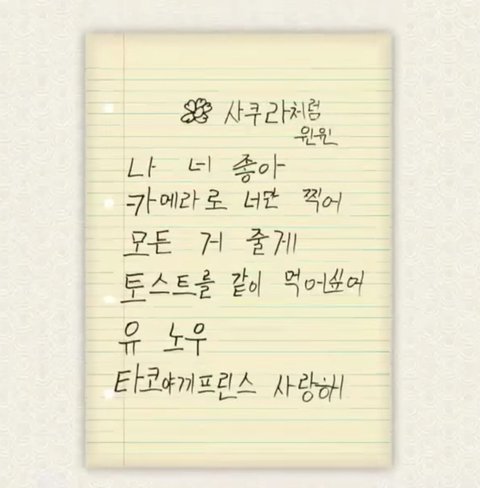 사쿠라처럼
윈윈
나 너 좋아
카메라로 너만 찍어
모든 거 줄게
토스트를 같이 먹어싶어
유 노우
타코야끼프린스 사랑해